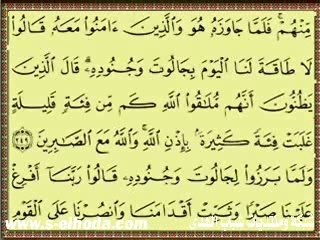 مِّنْهُمْ ۚ فَلَمَّا جَاوَزَهُ هُوَ وَٱلَّذِينَ ءَامَنُوا۟ مَعَهُ قَالُوا۟
لَا طَاقَةَ لَنَا ٱلْيَوْمَ بِجَالُوتَ وَجُنُودِهِۦ ۚ قَالَ ٱلَّذِينَ
يَظُنُّونَ أَنَّهُم مُّلَٰقُوا۟ ٱللَّهِ كَم مِّن فِئَةٍ قَلِيلَةٍ
غَلَبَتْ فِئَةً كَثِيرَةً ۢ بِإِذْنِ ٱللَّهِ ۗ وَٱللَّهُ مَعَ ٱلصَّٰبِرِينَ ٢٤٩
وَلَمَّا بَرَزُوا۟ لِجَالُوتَ وَجُنُودِهِۦ قَالُوا۟ رَبَّنَآ أَفْرِغْ
عَلَيْنَا صَبْرًا وَثَبِّتْ أَقْدَامَنَا وَٱنصُرْنَا عَلَى ٱلْقَوْمِ